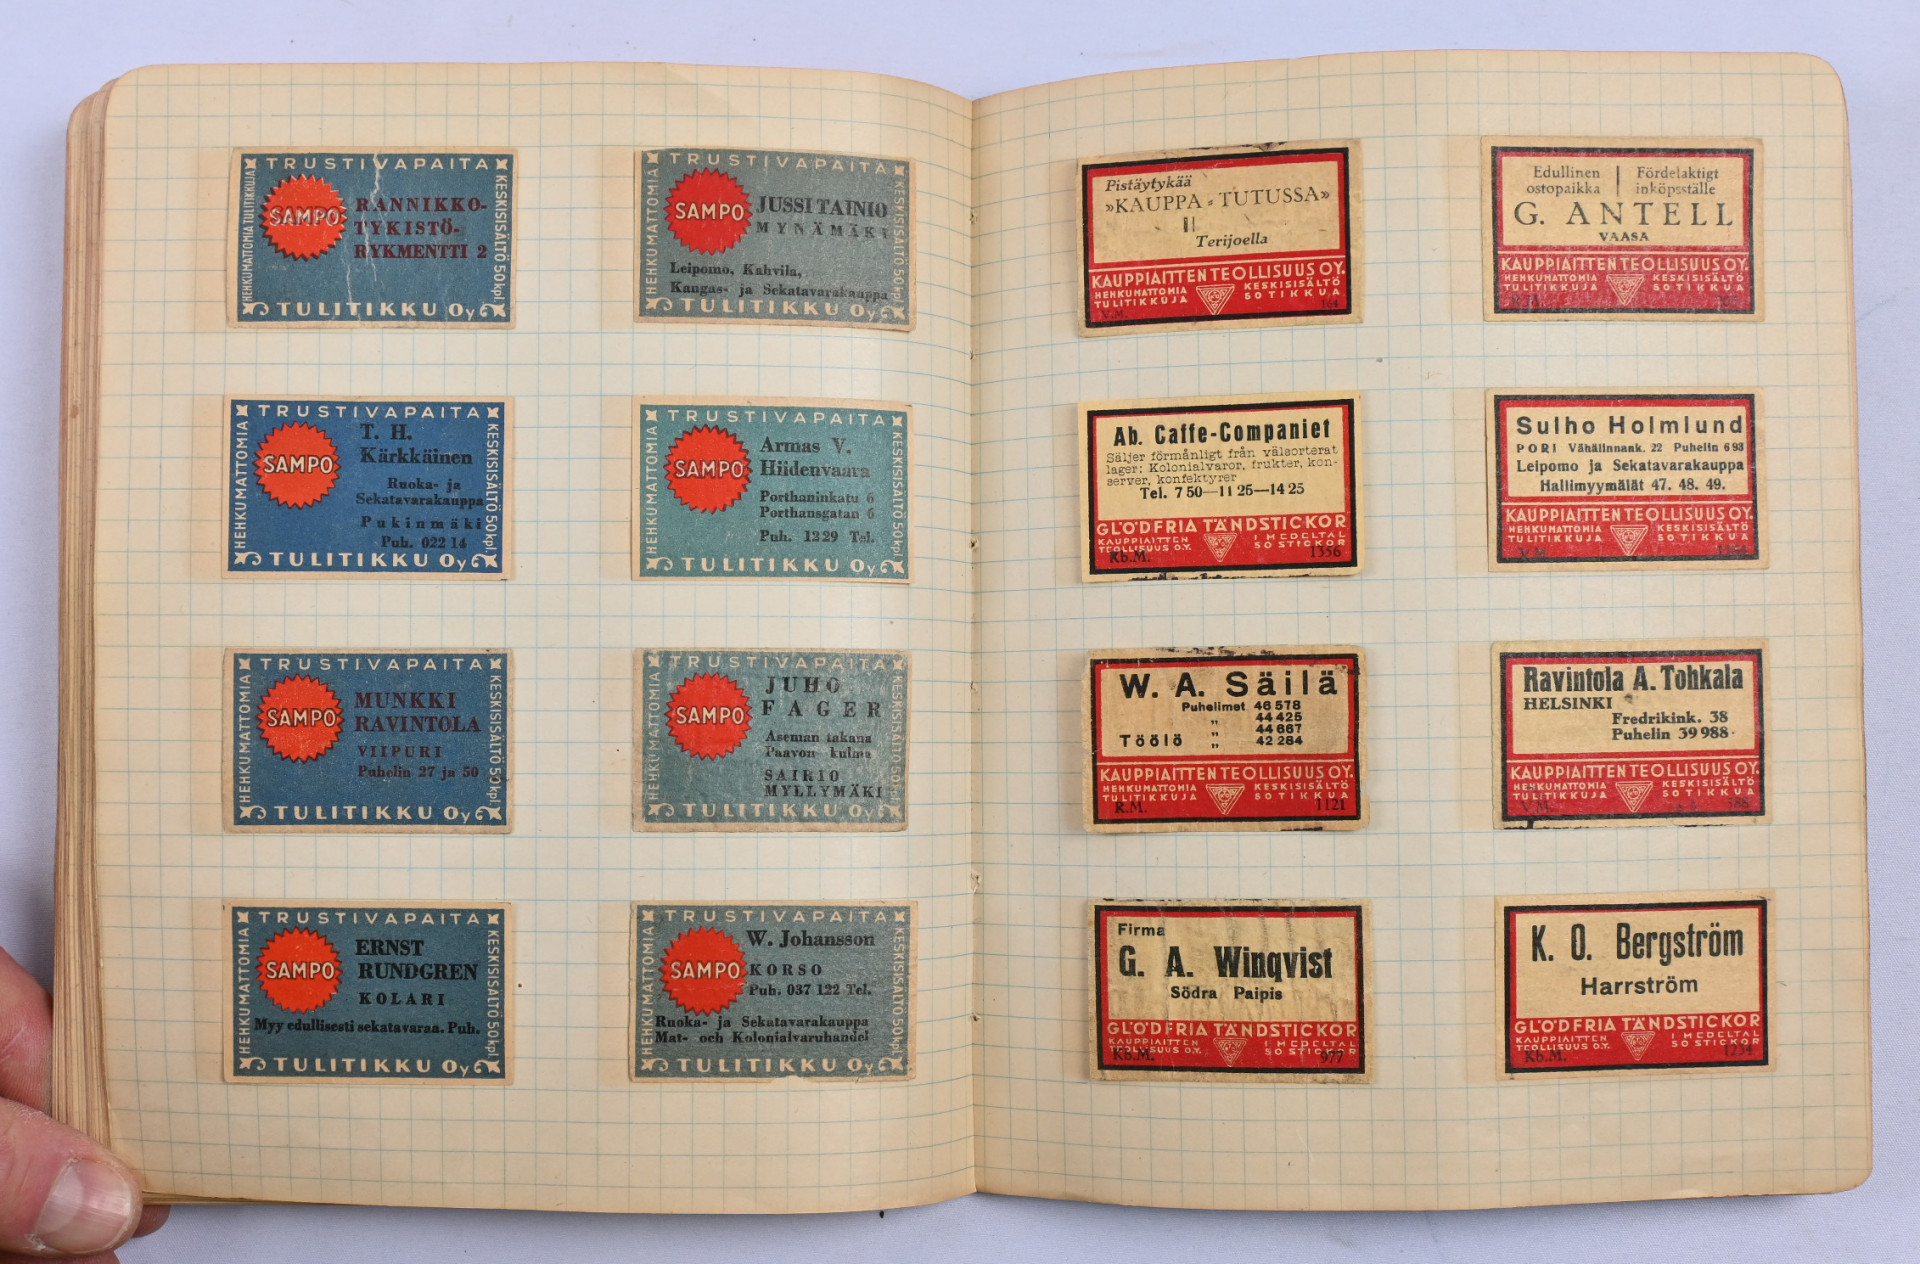 TRUSTIVAPAITA
HEHKUMATTOMIA TULITIKKUJA
SAMPO
RANNIKKO-
TYKISTÖ-
RYKMENTTI 2
KESKISISÄLTÖ 50 kpl.
TULITIKKU Oy
TRUSTIVAPAITA
HEHKUMATTOMIA
SAMPO
JUSSI TAINIO
MYNÄMÄKI
Leipomo, Kahvila,
Kangas- ja Sekatavarakauppa
KESKISISÄLTÖ 50 kpl.
TULITIKKU Oy
TRUSTIVAPAITA
HEHKUMATTOMIA
SAMPO
T. H.
Kärkkäinen
Ruoka- ja
Sekatavarakauppa
Pukinmäki
Puh. 022 14
KESKISISÄLTÖ 50 kpl.
TULITIKKU Oy
TRUSTIVAPAITA
HEHKUMATTOMIA
SAMPO
Armas V.
Hiidenvaara
Porthaninkatu 6
Porthansgatan 6
Puh. 1229 Tel.
KESKISISÄLTÖ 50 kpl.
TULITIKKU Oy
TRUSTIVAPAITA
HEHKUMATTOMIA
SAMPO
MUNKKI
RAVINTOLA
VIIPURI
Puhelin 27 ja 50
KESKISISÄLTÖ 50 kpl.
TULITIKKU Oy
TRUSTIVAPAITA
HEHKUMATTOMIA
SAMPO
JUHO
FAGER
Aseman takana
Paavon kulma
SAIRIO
MYLLYMÄKI
KESKISISÄLTÖ 50 kpl.
TULITIKKU Oy
TRUSTIVAPAITA
HEHKUMATTOMIA
SAMPO
ERNST
RUNDGREN
KOLARI
Myy edullisesti sekatavaraa. Puh.
KESKISISÄLTÖ 50 kpl.
TULITIKKU Oy
TRUSTIVAPAITA
HEHKUMATTOMIA
SAMPO
W. Johansson
KORSO
Puh. 037 122 Tel.
Ruoka- ja Sekatavarakauppa
Mat- och Kolonialvaruhandel
KESKISISÄLTÖ 50 kpl.
TULITIKKU Oy
Pistäytykää
»KAUPPA-TUTUSSA»
II
Terijoella
KAUPPIAITTEN TEOLLISUUS OY.
HEHKUMATTOMIA KESKISISÄLTÖ
TULITIKKUJA 50 TIKKUA
V.M. 164
Edullinen Fördelaktigt
ostopaikka inköpsställe
G. ANTELL
VAASA
KAUPPIAITTEN TEOLLISUUS OY.
HEHKUMATTOMIA KESKISISÄLTÖ
TULITIKKUJA 50 TIKKUA
R.M.
Ab. Caffe-Companiet
Säljer förmånligt från välsorterat
lager: Kolonialvaror, frukter, kon-
server, konfektyrer
Tel. 7 50—11 25—14 25
GLÖDFRIA TÄNDSTICKOR
KAUPPIAITTEN I MEDELTAL
TEOLLISUUS O.Y. 50 STICKOR
Kb.M. 1356
Sulho Holmlund
PORI Vähälinnank. 22 Puhelin 693
Leipomo ja Sekatavarakauppa
Hallimyymälät 47. 48. 49.
KAUPPIAITTEN TEOLLISUUS OY.
HEHKUMATTOMIA KESKISISÄLTÖ
TULITIKKUJA 50 TIKKUA
V.M.
W. A. Säilä
Puhelimet 46 578
„ 44 425
„ 44 667
Töölö „ 42 284
KAUPPIAITTEN TEOLLISUUS OY.
HEHKUMATTOMIA KESKISISÄLTÖ
TULITIKKUJA 50 TIKKUA
R.M. 1121
Ravintola A. Tohkala
HELSINKI
Fredrikink. 38
Puhelin 39 988.
KAUPPIAITTEN TEOLLISUUS OY.
HEHKUMATTOMIA KESKISISÄLTÖ
TULITIKKUJA 50 TIKKUA
V.M.
Firma
G. A. Winqvist
Södra Paipis
GLÖDFRIA TÄNDSTICKOR
KAUPPIAITTEN I MEDELTAL
TEOLLISUUS O.Y. 50 STICKOR
Kb.M. 977
K. O. Bergström
Harrström
GLÖDFRIA TÄNDSTICKOR
KAUPPIAITTEN I MEDELTAL
TEOLLISUUS O.Y. 50 STICKOR
Kb.M. 1234